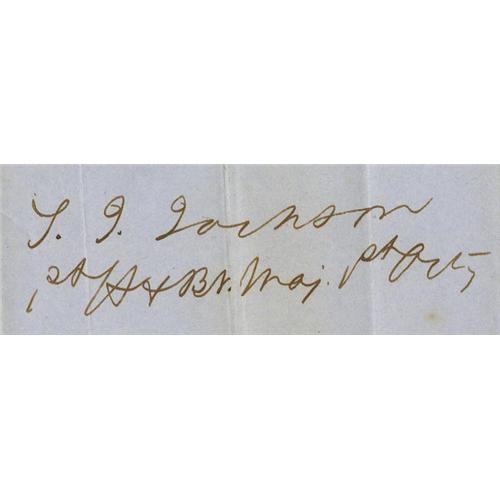 T. J. Jackson
1st Lt & Bv. Maj. 1st Arty